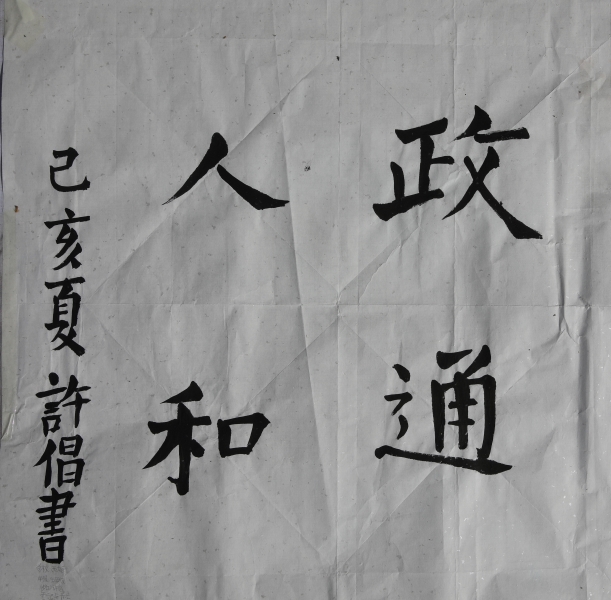 政通
人和
己亥夏許倡書